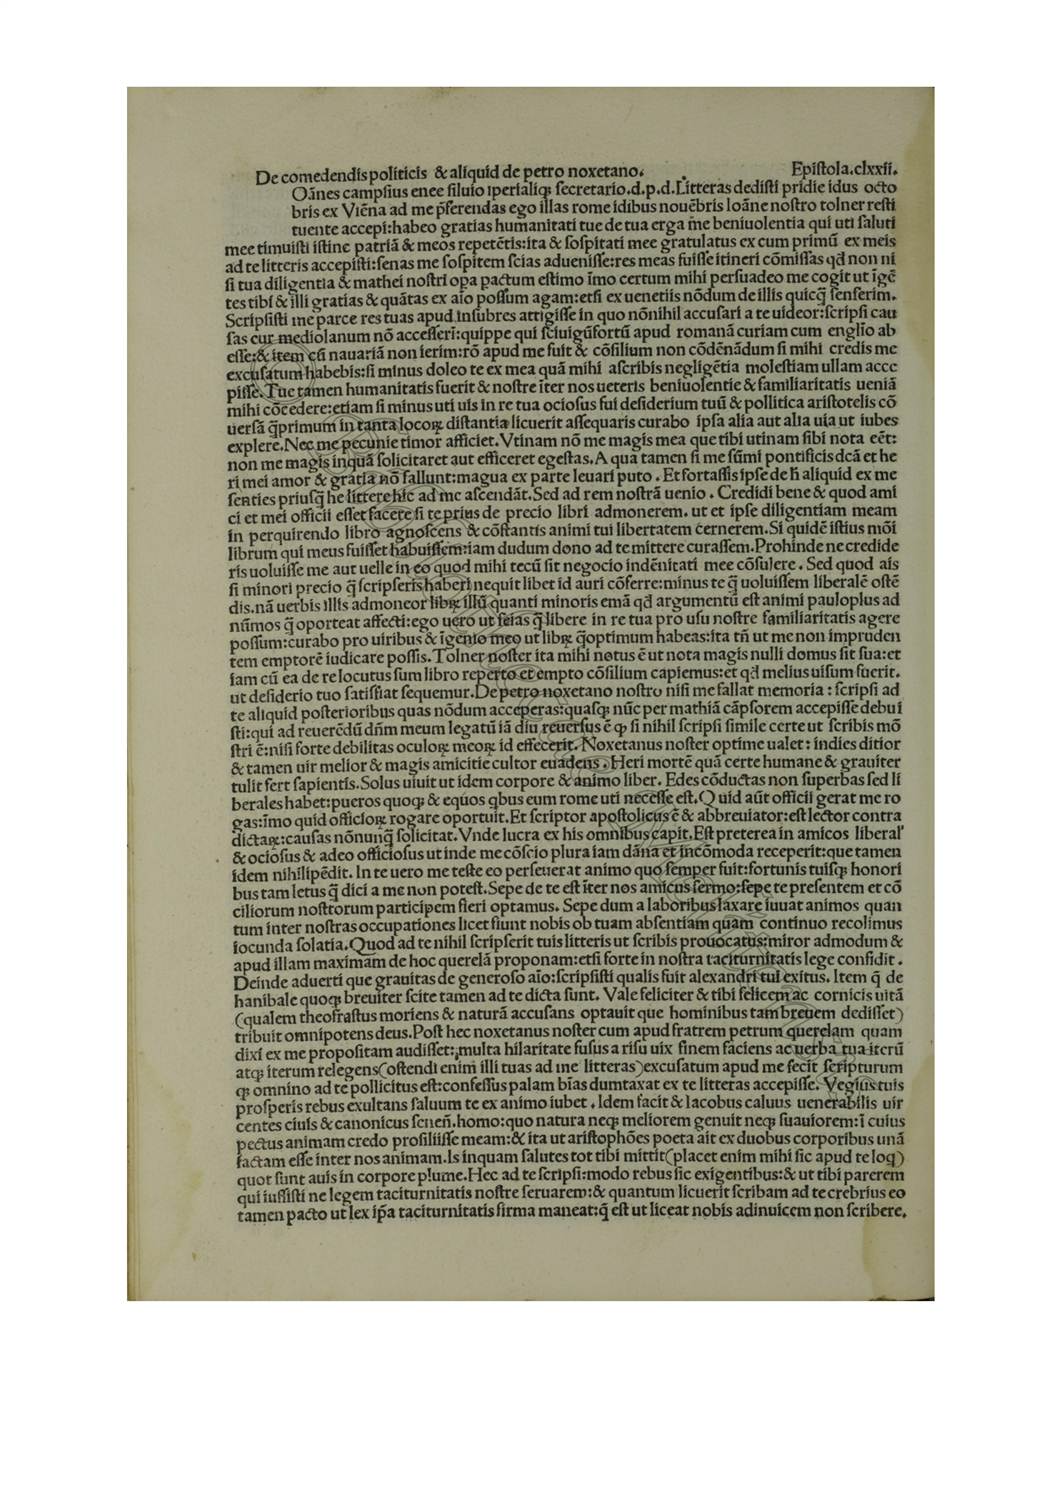 De comedendis politicis & aliquid de petro noxetano. Epistola.clxxii.
Oānes campsius enee siluio īperialiqꝫ secretario.d.p.d.Litteras dedisti pridie idus octo
bris ex Viēna ad me p̄ferendas ego illas rome idibus nouēbris Ioāne nostro tolner resti
tuente accepi:habeo gratias humanitati tue de tua erga me beniuolentia qui uti saluti
mee timuisti istinc patriā & meos repetētis:ita & sospitati mee gratulatus ex cum primū ex meis
ad te litteris accepisti:senas me sospitem scias aduenisse:res meas fuisse itineri cōmissas qđ non ni
si tua diligentia & mathei nostri opa pactum estimo īmo certum mihi persuadeo me cogit ut īgē
tes tibi & illi gratias & quātas ex aīo possum agam:etsi ex uenetiis nōdum de illis quicq̄ senserim.
Scripsisti me parce res tuas apud insubres attigisse in quo nōnihil accusari a te uideor:scripsi cau
sas cur mediolanum nō accesserī:quippe qui sciuigūfortū apud romanā curiam cum englio ab
esse:& item cū nauariā non ierim:rō apud me fuit & cōsilium non cōdēnādum si mihi credis me
excusatum habebis:si minus doleo te ex mea quā mihi ascribis negligētia molestiam ullam acce
pisse.Tue tamen humanitatis fuerit & nostre īter nos ueteris beniuolentie & familiaritatis ueniā
mihi cōcedere:etiam si minus uti uis in re tua ociosus fui desiderium tuū & pollitica aristotelis cō
uersā q̄primum in tanta locoꝝ distantia licuerit assequaris curabo ipsa alia aut alia uia ut iubes
explere.Nec me pecunie timor afficiet.Vtinam nō me magis mea que tibi utinam sibi nota eēt:
non me magis inquā solicitaret aut efficeret egestas.A qua tamen si me sūmi pontificis dcā et he
ri mei amor & gratia nō fallunt:magua ex parte leuari puto. Et fortassis ipse de h̄ aliquid ex me
senties priusq̄ he littere hic ad me ascendāt.Sed ad rem nostrā uenio. Credidi bene & quod ami
ci et mei officii esset facere si te prius de precio libri admonerem. ut et ipse diligentiam meam
in perquirendo libro agnoscens & cōstantis animi tui libertatem cernerem.Si quidē istius mōi
librum qui meus fuisset habuissem:iam dudum dono ad te mittere curassem.Prohinde ne credide
ris uoluisse me aut uelle in eo quod mihi tecū sit negocio indēnitati mee cōsulere. Sed quod ais
si minori precio q̄ scripseris haberi nequit libet id auri cōferre:minus te q̄ uoluissem liberalē ostē
dis.nā uerbis illis admoneor libꝝ illū quanti minoris emā qđ argumentū est animi pauloplus ad
nūmos q̄ oporteat affecti:ego uero ut scias q̄ libere in re tua pro usu nostre familiaritatis agere
possum:curabo pro uiribus & īgenio meo ut libꝝ q̄optimum habeas:ita tn̄ ut me non impruden
tem emptorē iudicare possis.Tolner noster ita mihi notus ē ut nota magis nulli domus sit sua:et
iam cū ea de re locutus sum libro reperto et empto cōsilium capiemus:et qđ melius uisum fuerit.
ut desiderio tuo satisfiat sequemur.De petro noxetano nostro nisi me fallat memoria : scripsi ad
te aliquid posterioribus quas nōdum acceperas:quasqꝫ nūc per mathiā cāpsorem accepisse debui
sti:qui ad reuerēdū dn̄m meum legatū iā diu reuersus ē qꝫ si nihil scripsi simile certe ut scribis mō
stri ē:nisi forte debilitas oculoꝝ meoꝝ id effecerit. Noxetanus noster optime ualet : indies ditior
& tamen uir melior & magis amicitie cultor euadens . Heri mortē quā certe humane & grauiter
tulit fert sapientis.Solus uiuit ut idem corpore & animo liber. Edes cōductas non superbas sed li
berales habet:pueros quoqꝫ & equos qbus eum rome uti necesse est.Quid aūt officii gerat me ro
gas:īmo quid officioꝝ rogare oportuit.Et scriptor apostolicus ē & abbreuiator:est lector contra
dictaꝝ:causas nōnunq̄ solicitat.Vnde lucra ex his omnibus capit.Est preterea in amicos liberal'
& ociosus & adeo officiosus ut inde me cōscio plura iam dāna et incōmoda receperit:que tamen
idem nihilipēdit. In te uero me teste eo perseuerat animo quo semper fuit:fortunis tuisqꝫ honori
bus tam letus q̄ dici a me non potest.Sepe de te est īter nos amicus sermo:sepe te presentem et cō
ciliorum nosttorum participem fieri optamus. Sepe dum a laboribus laxare iuuat animos quan
tum inter nostras occupationes licet fiunt nobis ob tuam absentiam quam continuo recolimus
iocunda solatia.Quod ad te nihil scripserit tuis litteris ut scribis prouocatus:miror admodum &
apud illam maximam de hoc querelā proponam:etsi forte in nostra taciturnitatis lege confidit .
Deinde aduerti que grauitas de generoso aīo:scripsisti qualis fuit alexandri tui exitus. Item q̄ de
hanibale quoqꝫ breuiter scite tamen ad te dicta sunt. Vale feliciter & tibi felicem ac cornicis uitā
(qualem theofrastus moriens & naturā accusans optauit que hominibus tam breuem dedisset)
tribuit omnipotens deus.Post hec noxetanus noster cum apud fratrem petrum querelam quam
dixi ex me propositam audisset:multa hilaritate fusus a risu uix finem faciens ac uerba tua iterū
atqꝫ iterum relegens(ostendi enim illi tuas ad me litteras)excusatum apud me fecit scripturum
qꝫ omnino ad te pollicitus est:confessus palam bīas dumtaxat ex te litteras accepisse. Vegius tuis
prosperis rebus exultans saluum te ex animo iubet . Idem facit & Iacobus caluus uenerabilis uir
centes ciuis & canonicus senen̄.homo:quo natura neqꝫ meliorem genuit neqꝫ suauiorem:ī cuius
pectus animam credo prosiliisse meam:& ita ut aristophōes poeta ait ex duobus corporibus unā
factam esse inter nos animam.Is inquam salutes tot tibi mittit(placet enim mihi sic apud te loq)
quot sunt auis in corpore plume.Hec ad te scripsi:modo rebus sic exigentibus:& ut tibi parerem
qui iussisti ne legem taciturnitatis nostre seruarem:& quantum licuerit scribam ad te crebrius eo
tamen pacto ut lex ip̄a taciturnitatis firma maneat:q̄ est ut liceat nobis adinuicem non scribere.